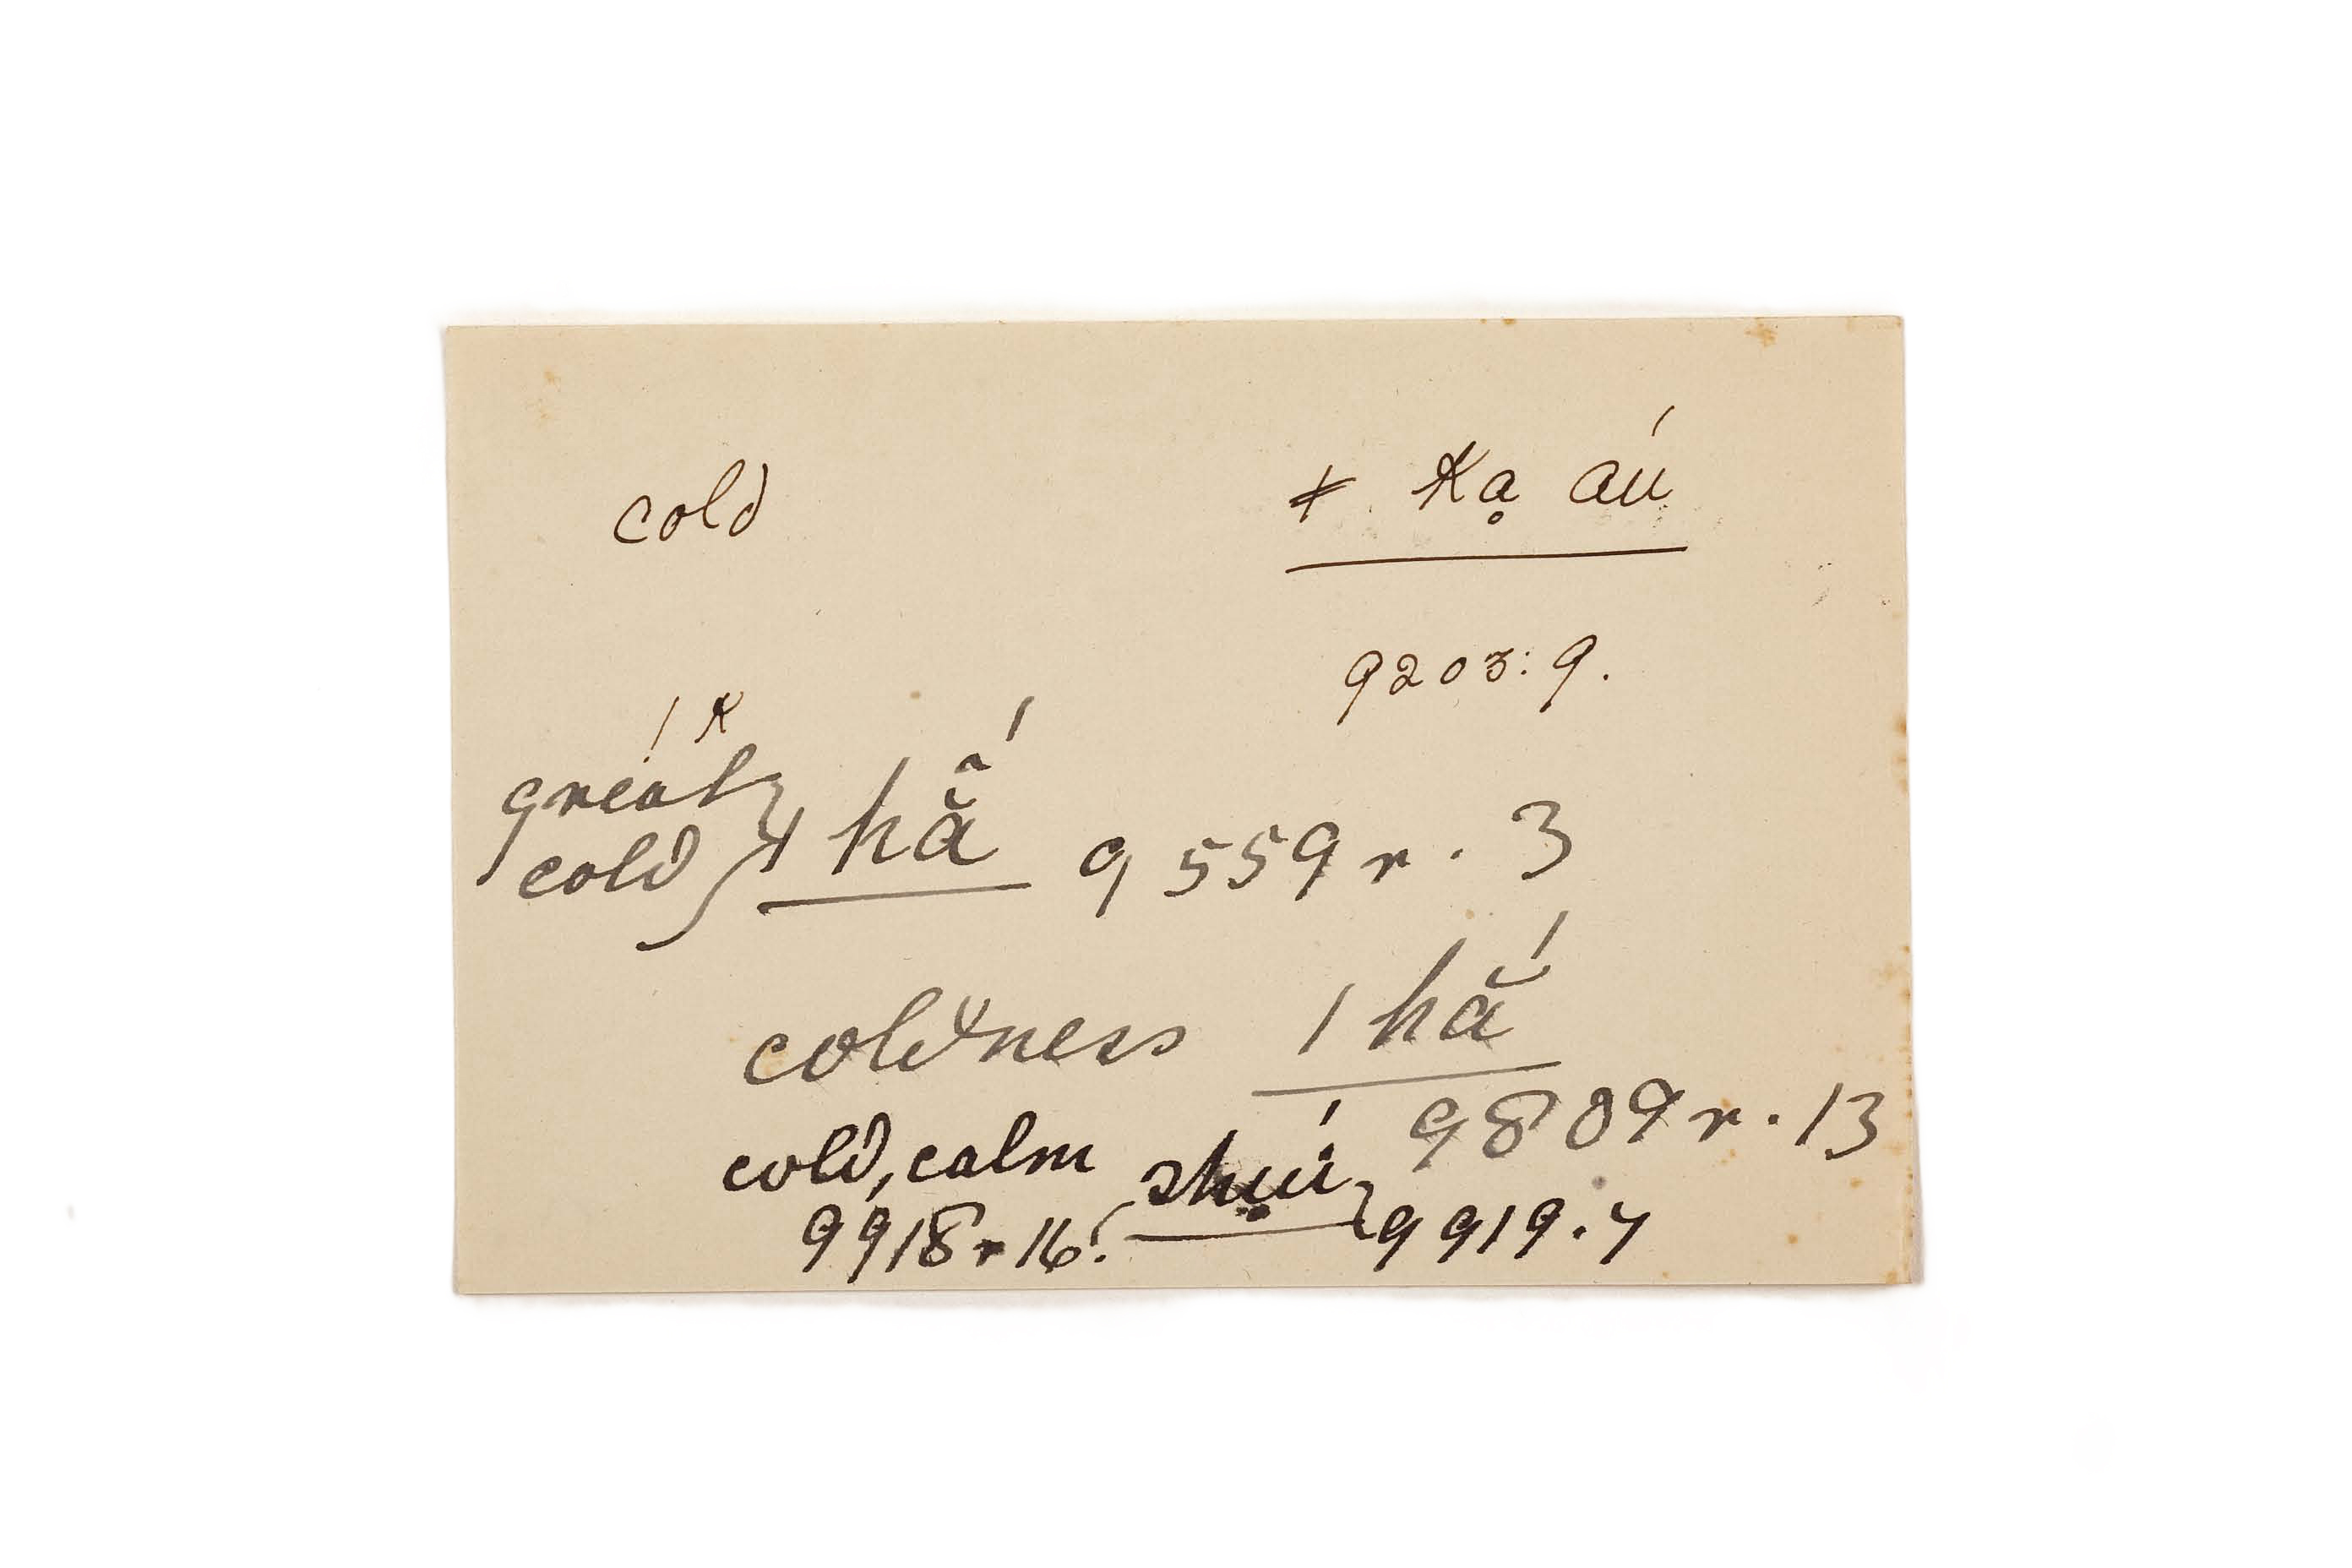 cold ǂ Ka̦ au̒
9203:9.
great cold ǂ hã̌ 9559 r. 3
coldness / hắ
9809 r. 13
cold, calm shu̥ú
9918 r 16. 9919.7